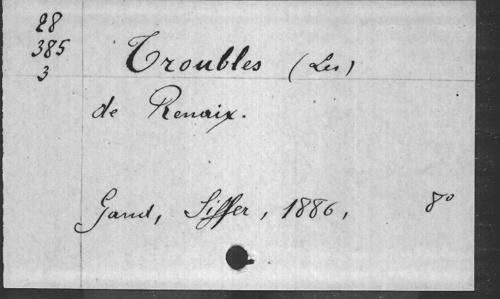 28
385
3
Troubles (Les)
de Renaix.
Gand, Siffer, 1886, 8°